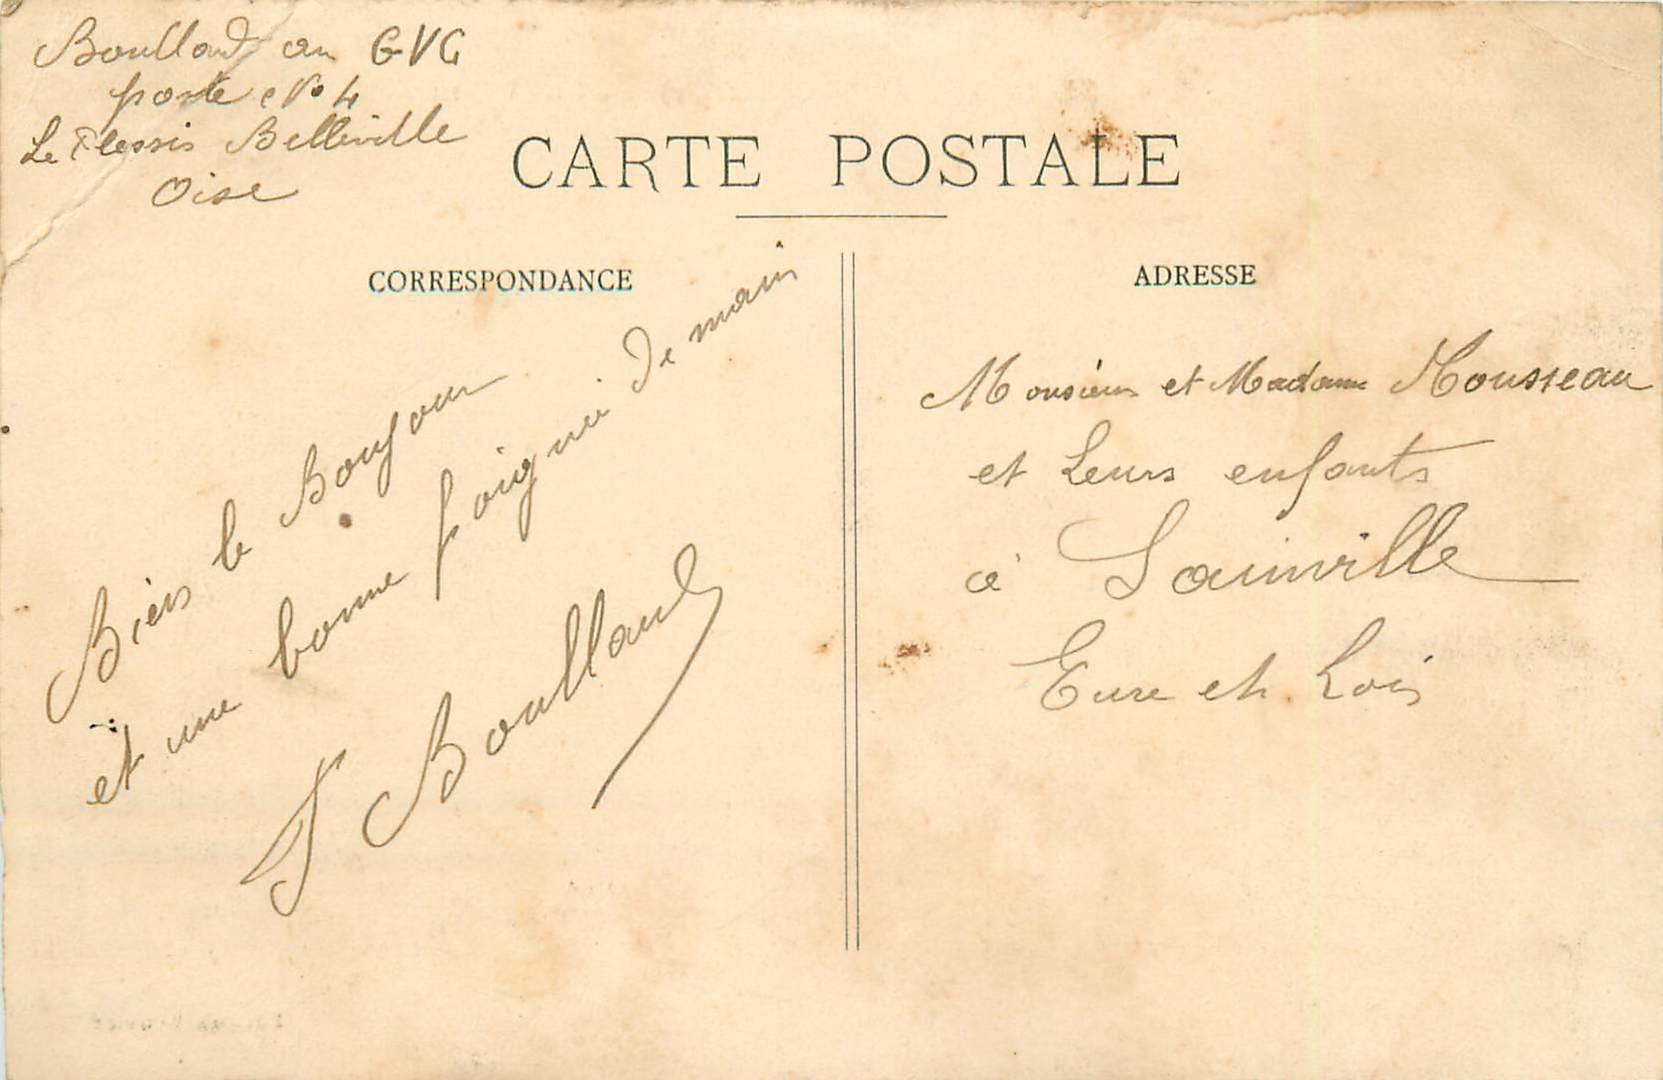 Boulland au GVC
poste No 4
Le Plessis Belleville
Oise
CARTE POSTALE
CORRESPONDANCE
ADRESSE
Bien le Bonjour
et une bonne poignée de main
Boulland
Monsieur et Madame Housseau
et Leurs enfants
à Sainville
Eure et Loir